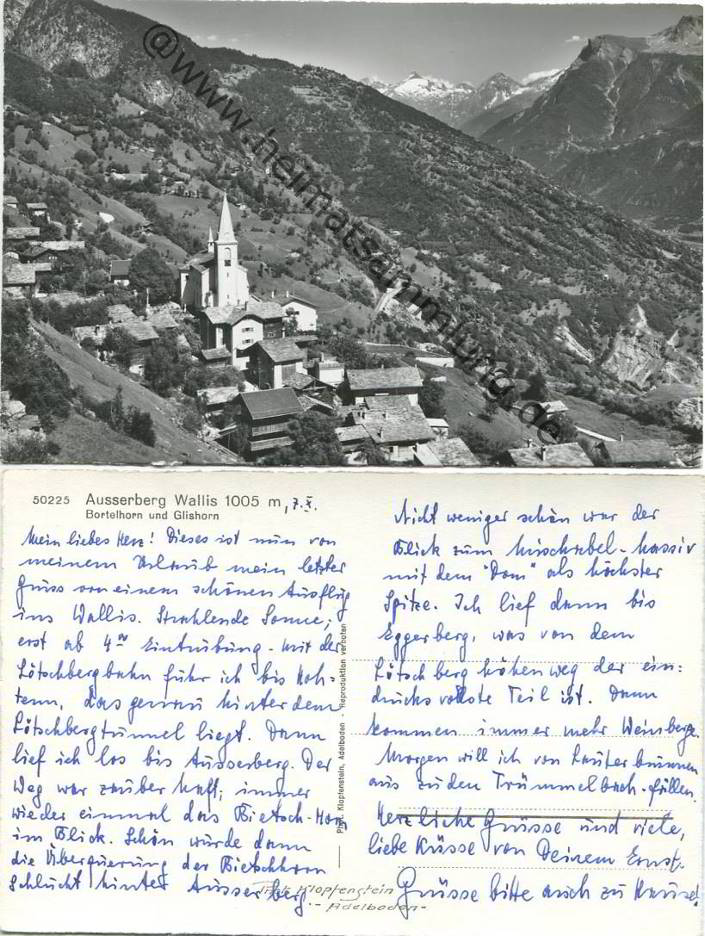 @www.heimatsammlung.de
50225 Ausserberg Wallis 1005 m, 7. X.
Bortelhorn und Glishorn
Mein liebes Herz! Dieses ist nun von
meinem Urlaub mein letzter
Gruss von einem schönen Ausflug
ins Wallis. Strahlende Sonne;
erst ab 4 Eintrübung. Mit der
Lötschbergbahn fuhr ich bis Hoh-
tenn, das genau hinter dem
Lötschbergtunnel liegt. Dann
lief ich los bis Ausserberg. Der
Weg war zauberhaft; immer
wieder einmal das Bietsch-Horn
im Blick. Schön wurde dann
die Überquerung der Bietschhorn
schlucht hinter Ausserberg.
Phot. Klopfenstein, Adelboden - Reproduktion verboten
Nicht weniger schön war der
Blick zum Mischabel-Massiv
mit dem "Dom" als höchster
Spitze. Ich lief dann bis
Eggerberg, was von dem
Lötschberghöhenweg der ein=
drucksvollste Teil ist. Dann
kommen immer mehr Weinberge.
Morgen will ich von Lauterbrunnen
aus zu den Trümmelbach-fällen.
Herzliche Grüsse und viele,
liebe Küsse von Deinem Ernst.
Grüsse bitte auch zu Hause!
Klopfenstein
- Adelboden -